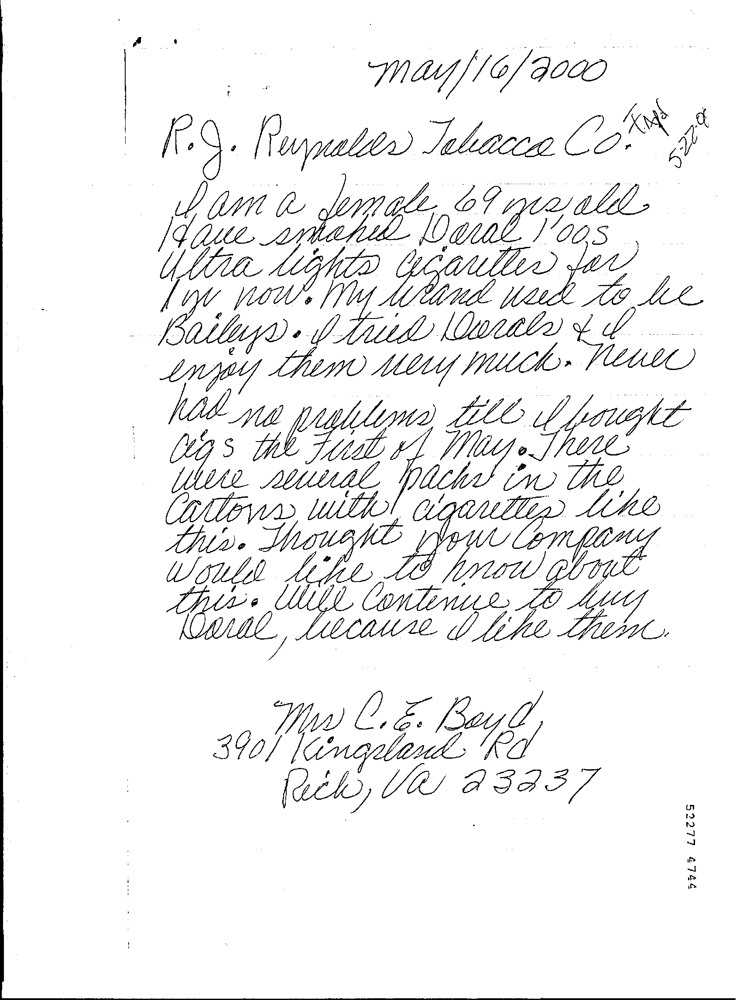 May/16/2000
R.J. Reynolds Tobacco Co.
5-22-0
I am a female 69 yrs old
Have smoked Doral 100s
Ultra lights cigarettes for
1 yr now. My brand used to be
Baileys. I tried Dorals & I
enjoy them very much. Never
had no problems till I bought
cigs the First of May. There
were several packs in the
Cartons with cigarettes like
this. Thought your Company
would like to know about
this. Will Contenue to buy
Doral, because I like them.
Mrs C.E. Boyd,
3901 Kingsland Rd
Rich, VA 23237
52277 4744